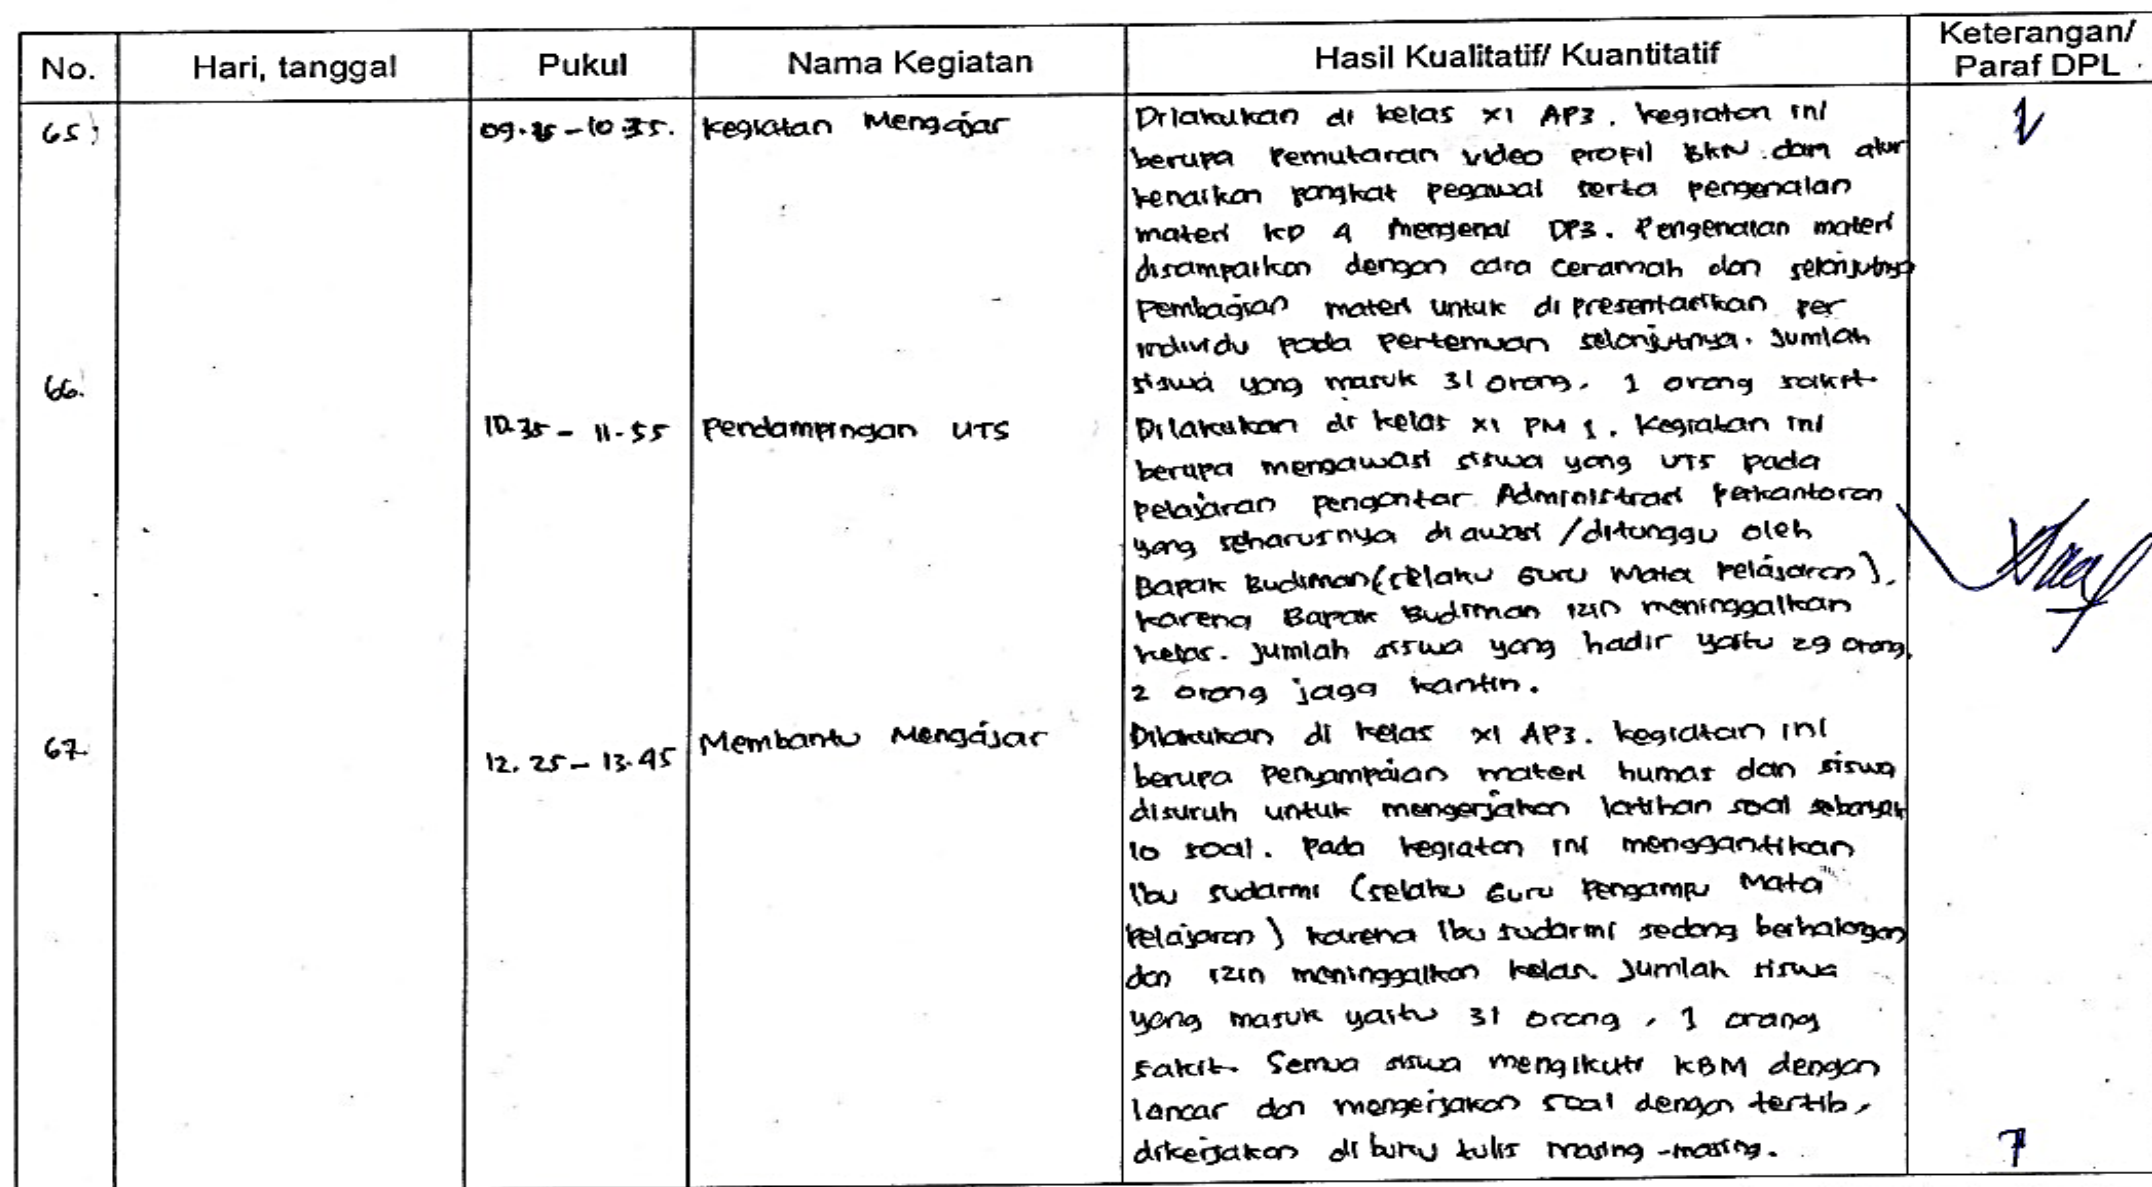 No. Hari, tanggal Pukul Nama Kegiatan Hasil Kualitatif/ Kuantitatif Keterangan/
Paraf DPL
65. 09. - 10.35. Kegiatan Mengajar Dilakukan di kelas XI AP3. kegiatan ini
berupa Pemutaran video profil BKN dan alur
kenaikan pangkat pegawai serta pengenalan
materi KD 4 mengenai DP3. Pengenalan materi
disampaikan dengan cara ceramah dan selanjutnya
Pembagian materi untuk di presentasikan per
individu pada pertemuan selanjutnya. Jumlah
66. siswa yang masuk 31 orang, 1 orang sakit.
10.35 - 11.55 Pendampingan UTS Dilakukan di kelas XI PM 1. Kegiatan ini
berupa mengawasi siswa yang UTS pada
pelajaran Pengantar Administrasi Perkantoran
yang seharusnya di awasi /ditunggu oleh
Bapak Budiman (selaku Guru Mata Pelajaran),
karena Bapak Budiman izin meninggalkan
kelas. Jumlah siswa yang hadir yaitu 29 orang,
2 orang jaga kantin.
67. 12.25 - 13.45 Membantu Mengajar Dilakukan di kelas XI AP3. kegiatan ini
berupa Penyampaian materi humas dan siswa
disuruh untuk mengerjakan latihan soal sebanyak
10 soal. Pada kegiatan ini menggantikan
Ibu Sudarmi (selaku Guru Pengampu Mata
Pelajaran) karena Ibu Sudarmi sedang berhalangan
dan izin meninggalkan kelas. Jumlah siswa
yang masuk yaitu 31 orang, 1 orang
sakit. Semua siswa mengikuti KBM dengan
lancar dan mengerjakan soal dengan tertib,
dikerjakan di buku tulis masing-masing.